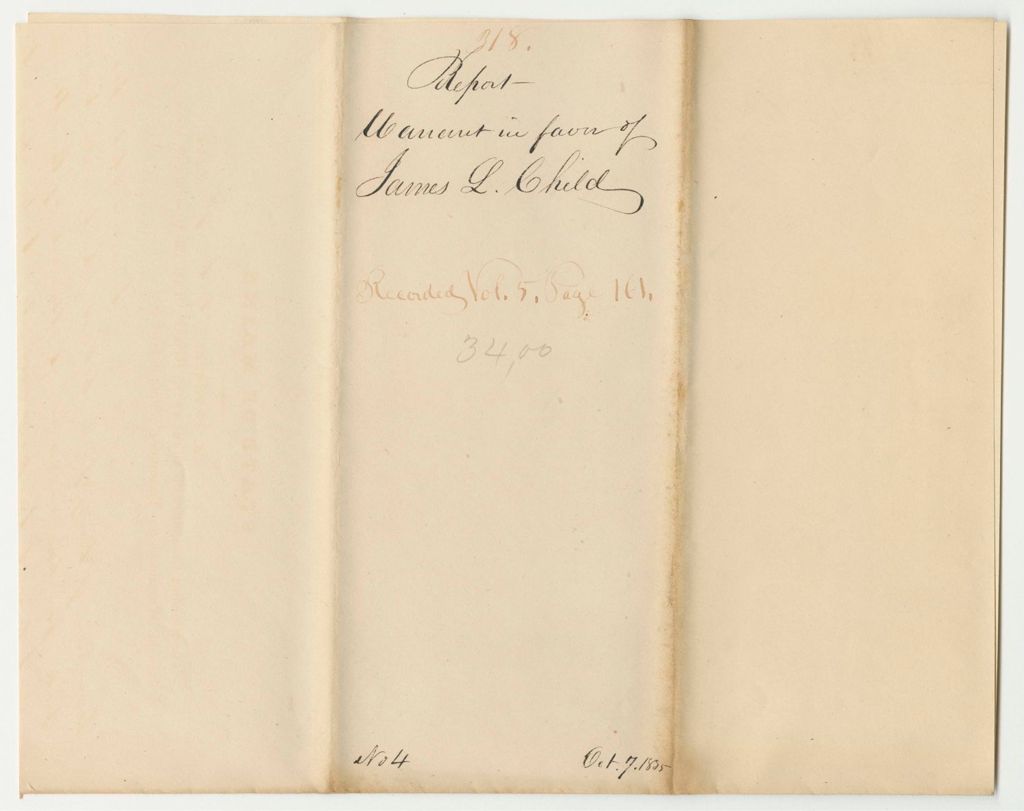 318.
Report
Warrant in favor of
James L. Child
Recorded Vol. 5. Page 161.
34,00
No 4
Oct. 7. 1835